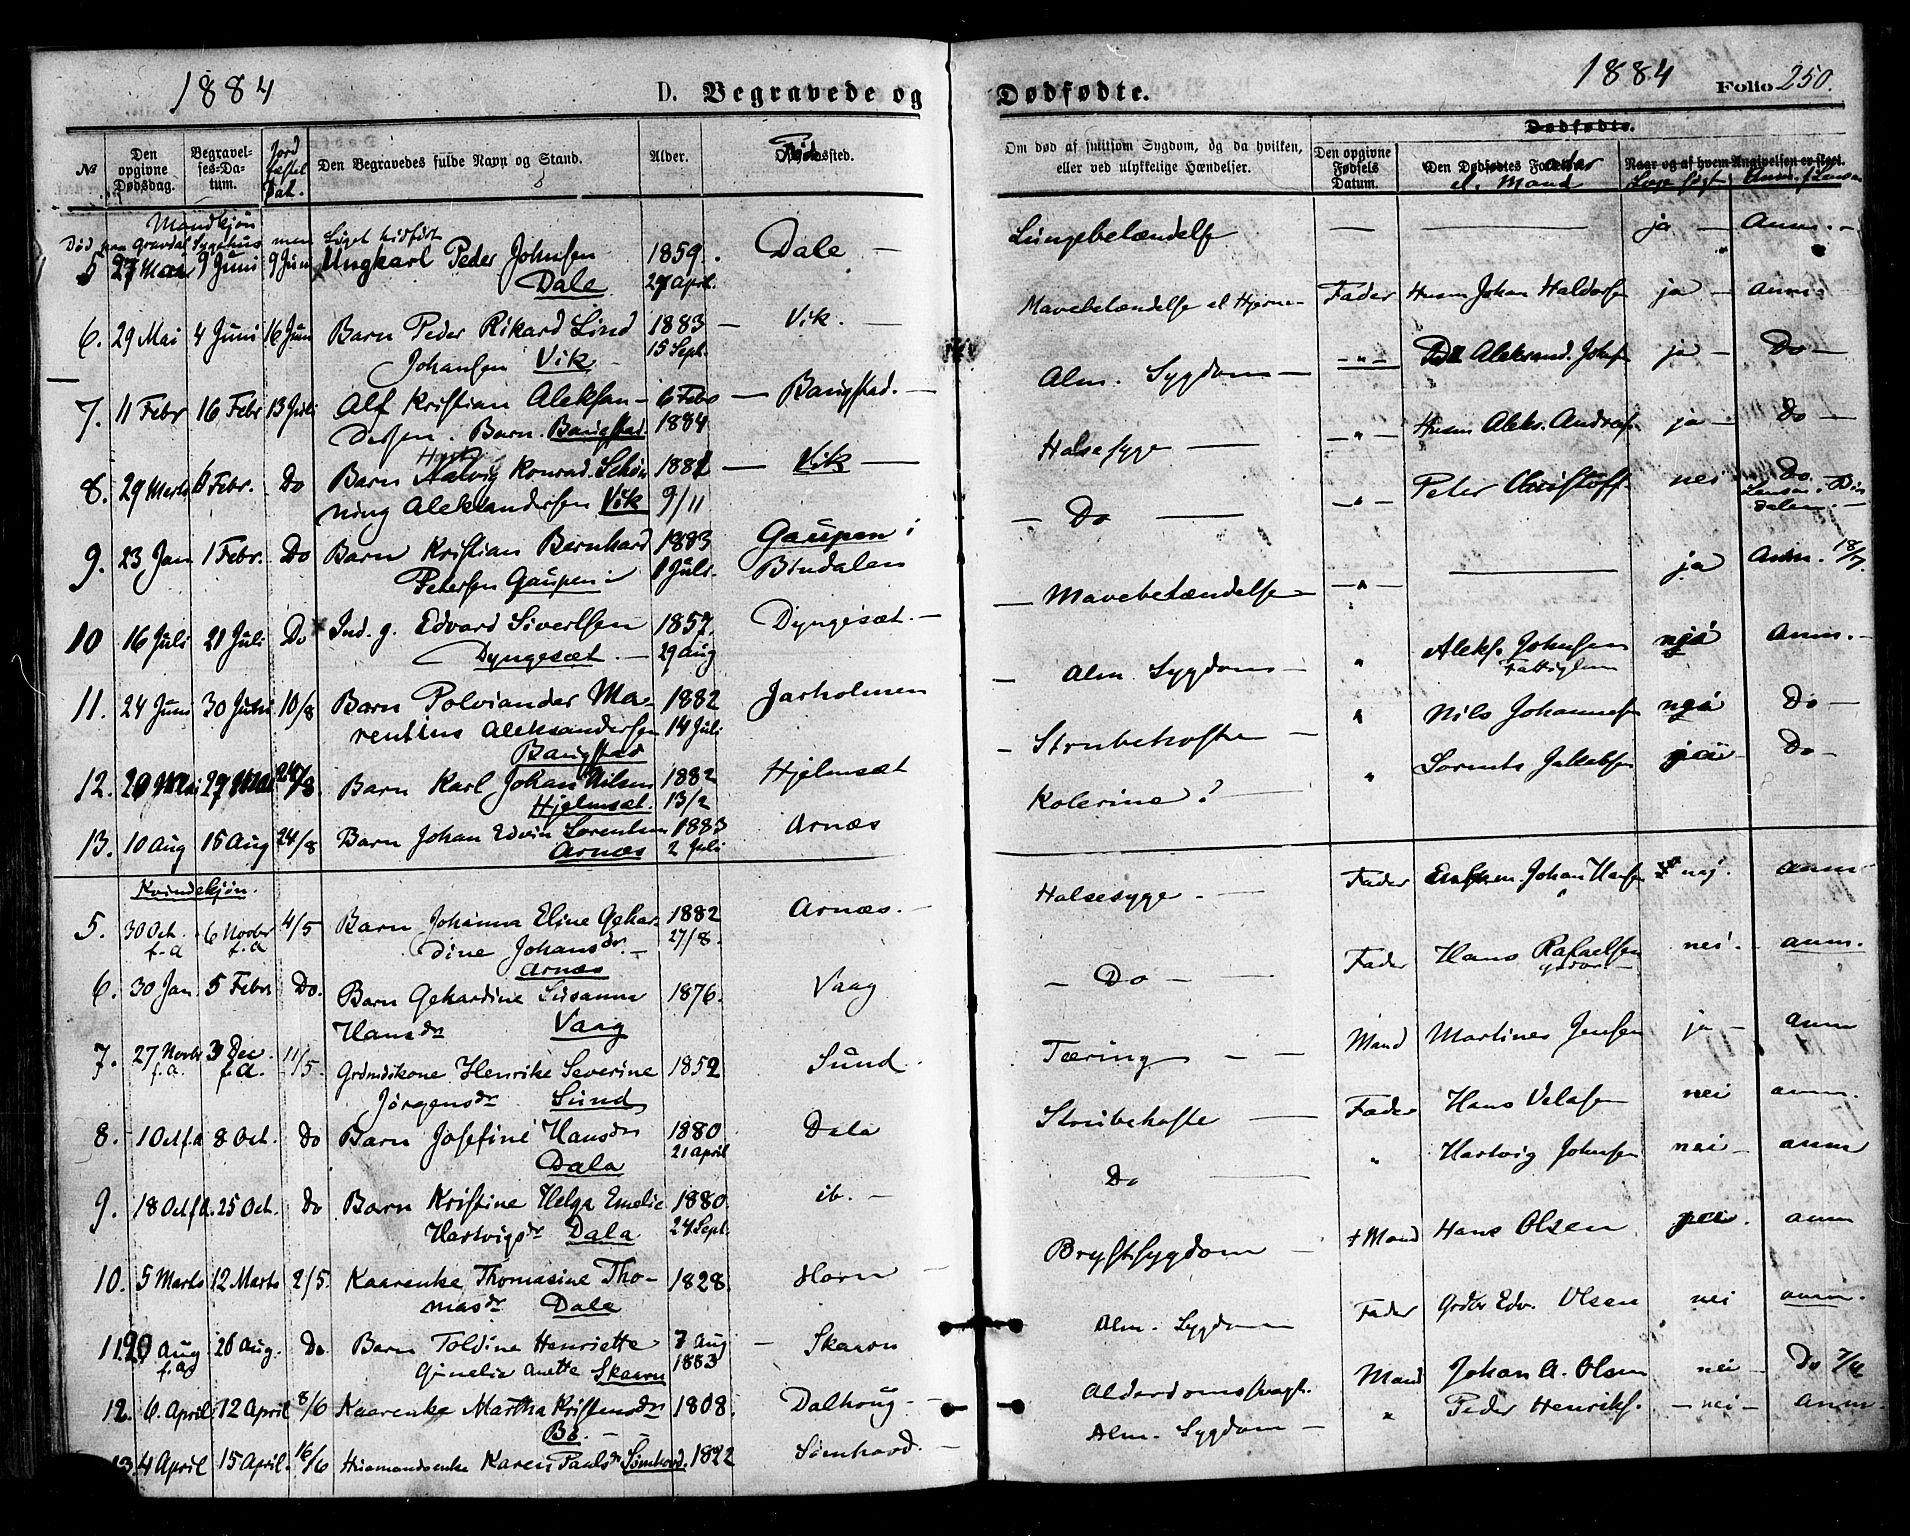 1884
D. Begravede og
Dødfødte.
1884
Folio 250.
№
Den opgivne Dødsdag.
Begravelses-Datum.
Jord fæstel Dat.
Den Begravedes fulde Navn og Stand.
Alder.
Om død af smitsom Sygdom, og da hvilken, eller ved ulykkelige Hændelser.
Den opgivne Fødsels Datum.
Den Dødfødtes
el. Mand
Dødfødte.
Naar og af hvem Angivelsen er skeet.
Mandkjøn
Død paa Gravdal Sygehus men Liget hidført
5 27 Mai 9 Juni 9 Juni Ungkarl Peder Johnsen 1859. Dale — Lungebetændelse — — ja — Anm. —
Dale 27 April.
6. 29 Mai 4 Juni 16 Juni Barn Peder Rikard Lind 1883 — Vik. — Mavebetændelse el Hjerne- Fader Husm Johan Haldorsen ja — Anm.
Johansen Vik 15 Sept.
7. 11 Febr 16 Febr 13 Juli Alf Kristian Aleksan- 6 Febr — Baugstad. — Alm. Sygdom — — „ — Aleksand. Johs ja — Do —
dersen. Barn. Baugstad 1884
8. 29 Marts Febr. Do Barn Halvig Konrad Schøn — Vik — Halsesyge — — „ — Husm Aleks. Andreas ja — Do —
ning Aleksandersen Vik 9/11
9. 23 Jan 1 Febr. Do Barn Kristian Bernhard 1883 Gaupen i — Do — — „ — Peter Christoff. nei Do. Lensm. i Bin
Petersen Gaupen Juli. Bindalen dalen. —
10 16 Juli 21 Juli Do Ind. g. Edvard Sivertsen 1857. Dyngesæt. — — Mavebetændelse — „ — — ja Anm. 18/7.
Dyngesæt. — 29 Aug
11. 24 Juni 30 Juni 10/8 Barn Polviander Ma- 1882 Jarholmen — Alm. Sygdom — „ Aleks. Johnsen Anm. —
rentius Aleksandersen 14 Juli Fattiglem
Baugstad
12. 29 Mai 24/8 Barn Karl Johan Nilsen 1882 Hjelmsæt — Strubehoste — „ Nils Johannes Do —
Hjelmsæt. 13/2
13. 10 Aug 15 Aug 24/8 Barn Johan Edvin Sorentsen 1883 Arnæs Kolerine? — „ Sorents Jakobsen Do —
Arnæs 2 Juli
Kvindekjøn.
5. 30 Oct. 6 Novbr 4/5 Barn Johanna Eline Gehar- 1882 Arnæs. — Halsesyge — Fader Johan Hansen nej. Anm —
f.a f.a dine Johansdr — 27/8.
Arnæs
6. 30 Jan. 5 Febr Do. Barn Gehardine Susanna 1876. Vaag — Do — Fader Hans Rafaelsen nei — Anm.
Hansdr Vaag
7. 27 Novbr 3 Dec. 11/5 Grdmdskone Henrike Severine 1852 Sund Tæring — — Mand Martines Jensen ja — Anm
f.a. f.a. Jørgensdr Sund
8. 1 Oct f.a 8 Oct. Do Barn Josefine Hansdr 1880 Dala Strubehoste — Fader Hans Velasen nei Anm.
Dala 21 April
9. 18 Oct f.a. 25 Oct. Do Barn Kristine Helga Emelie 1880. ib. — Do — „ Hartvig Johnsen nei — Anm
Hartvigsdr Dala 24 Sept.
10. 5 Marts 12 Marts 2/5. Kaarenke Thomasine Tho- 1828. Horn — Brystsygdom — † Mand Hans Olsen nei. Anm
masdr Dale
11. 20 Aug 26 Aug. Do Barn Toldine Henriette 7 Aug — Skaarn Alm. Sygdom Fader Grdbr Edv. Olsen nei Anm.
f.a Ginelia Anette Skaarn 1883
12. 6 April 12 April 8/6 Kaarenke Martha Kristensdr 1808. Dalhoug — Alderdomssvagh. Mand Johan A. Olsen nei — Do
Bø. —
13. 4 April 15 April. 16/6 Husmandsenke Karen Paulsdr Sømhovd. 1822 Sømhovd. — Alm. Sygdom — „ Peder Henriks. — nei — Anm.